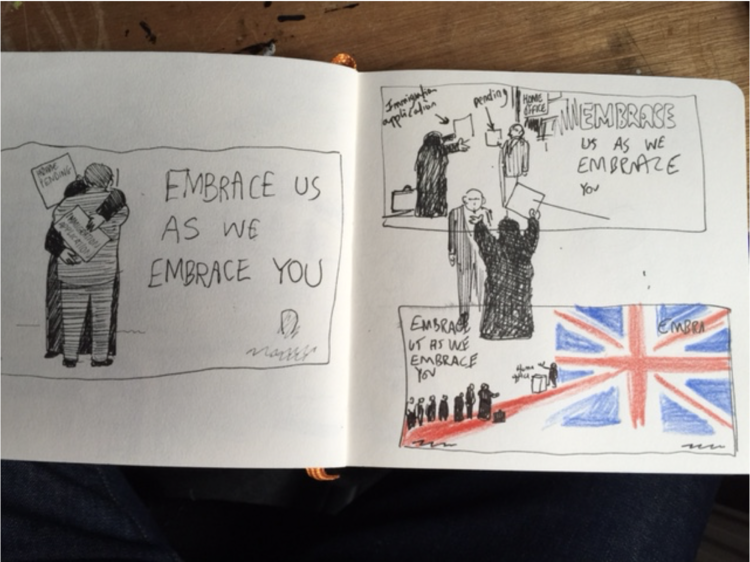 HOME
PENDING
IMMIGRATION
APPLICATION
EMBRACE US
AS WE
EMBRACE YOU
Immigration
application
pending
HOME
OFFICE
EMBRACE
US AS WE
EMBRACE
YOU
EMBRACE
US AS WE
EMBRACE
YOU
Home
office
EMBRA